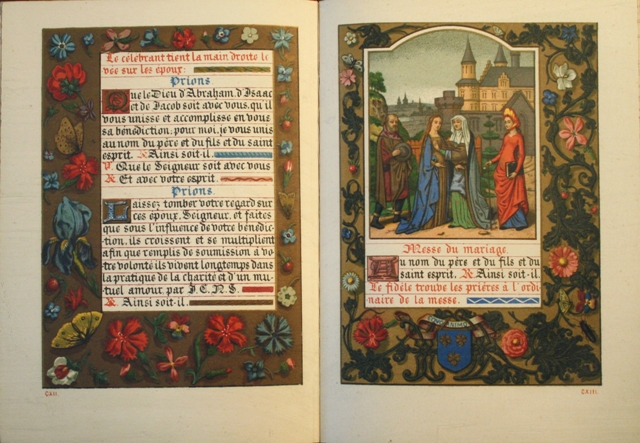 Le célébrant tient la main droite le
vée sur les époux:
Prions
Que le Dieu d'Abraham, d'Isaac
et de Jacob soit avec vous, qu'il
vous unisse et accomplisse en vous
sa bénédiction; pour moi, je vous unis
au nom du père et du fils et du saint
esprit. ℟ Ainsi soit-il.
℣ Que le Seigneur soit avec vous
℟ Et avec votre esprit.
Prions.
Laissez tomber votre regard sur
ces époux, Seigneur, et faites
que sous l'influence de votre bénédic-
tion, ils croissent et se multiplient
afin que remplis de soumission à vo-
tre volonté ils vivent longtemps dans
la pratique de la charité et d'un mu-
tuel amour, par J.C.N.S.
℟ Ainsi soit-il.
Messe du mariage.
Au nom du père et du fils et du
saint esprit. ℟ Ainsi soit-il.
Le fidèle trouve les prières à l'ordi-
naire de la messe.
CXII.
CXIII.